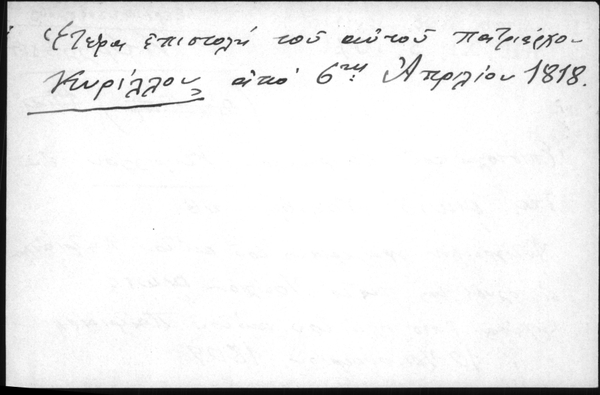 Ἑτέρα ἐπιστολή τοῦ αὐτοῦ πατριάρχου
Κυρίλλου, ἀπό 6ης Ἀπριλίου 1818.